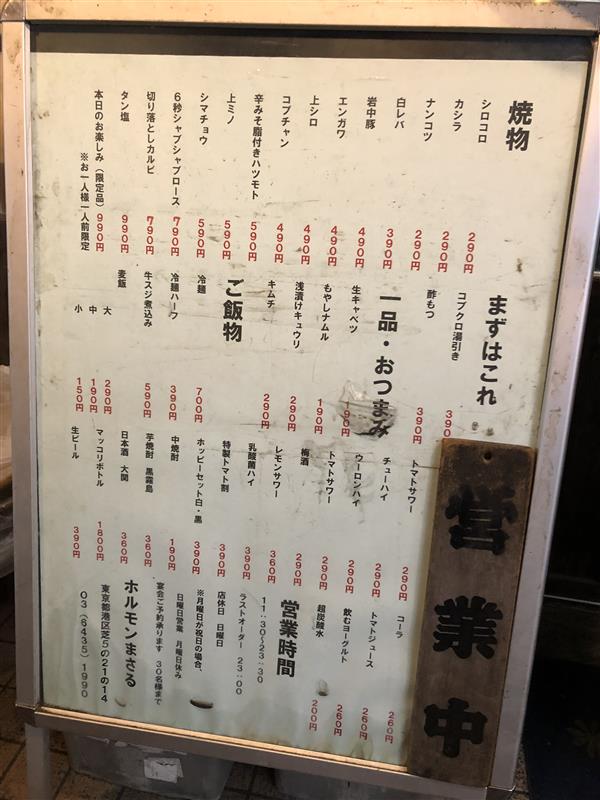 焼物
シロコロ 290円
カシラ 290円
ナンコツ 290円
白レバ 390円
岩中豚 490円
エンガワ 490円
上シロ 490円
コブチャン 490円
辛みそ脂付きハツモト 590円
上ミノ 590円
シマチョウ 590円
6秒シャブシャブロース 790円
切り落としカルビ 790円
タン塩 990円
本日のお楽しみ(限定品) 990円
※お一人様一人前限定
まずはこれ
コブクロ湯引き 390
酢もつ 390円
一品・おつまみ
生キャベツ 190円
もやしナムル 190円
浅漬けキュウリ 290円
キムチ 290円
ご飯物
冷麺 700円
冷麺ハーフ 390円
牛スジ煮込み 590円
麦飯
大 290円
中 190円
小 150円
トマトサワー 290円
チューハイ 290円
ウーロンハイ 290円
トマトサワー 290円
梅酒 290円
レモンサワー 360円
乳酸菌ハイ 390円
特製トマト割 390円
ホッピーセット白・黒 390円
中焼酎 190円
芋焼酎 黒霧島 360円
日本酒 大関 360円
マッコリボトル 1800円
生ビール 390円
コーラ 260円
トマトジュース 260円
飲むヨーグルト 260円
超炭酸水 200円
営業時間
11:30〜23:30
ラストオーダー 23:00
店休日 日曜日
※月曜日が祝日の場合、
日曜日営業 月曜日休み
宴会ご予約承ります 30名様まで
ホルモンまさる
東京都港区芝5の21の14
03(6435)1990
営業中